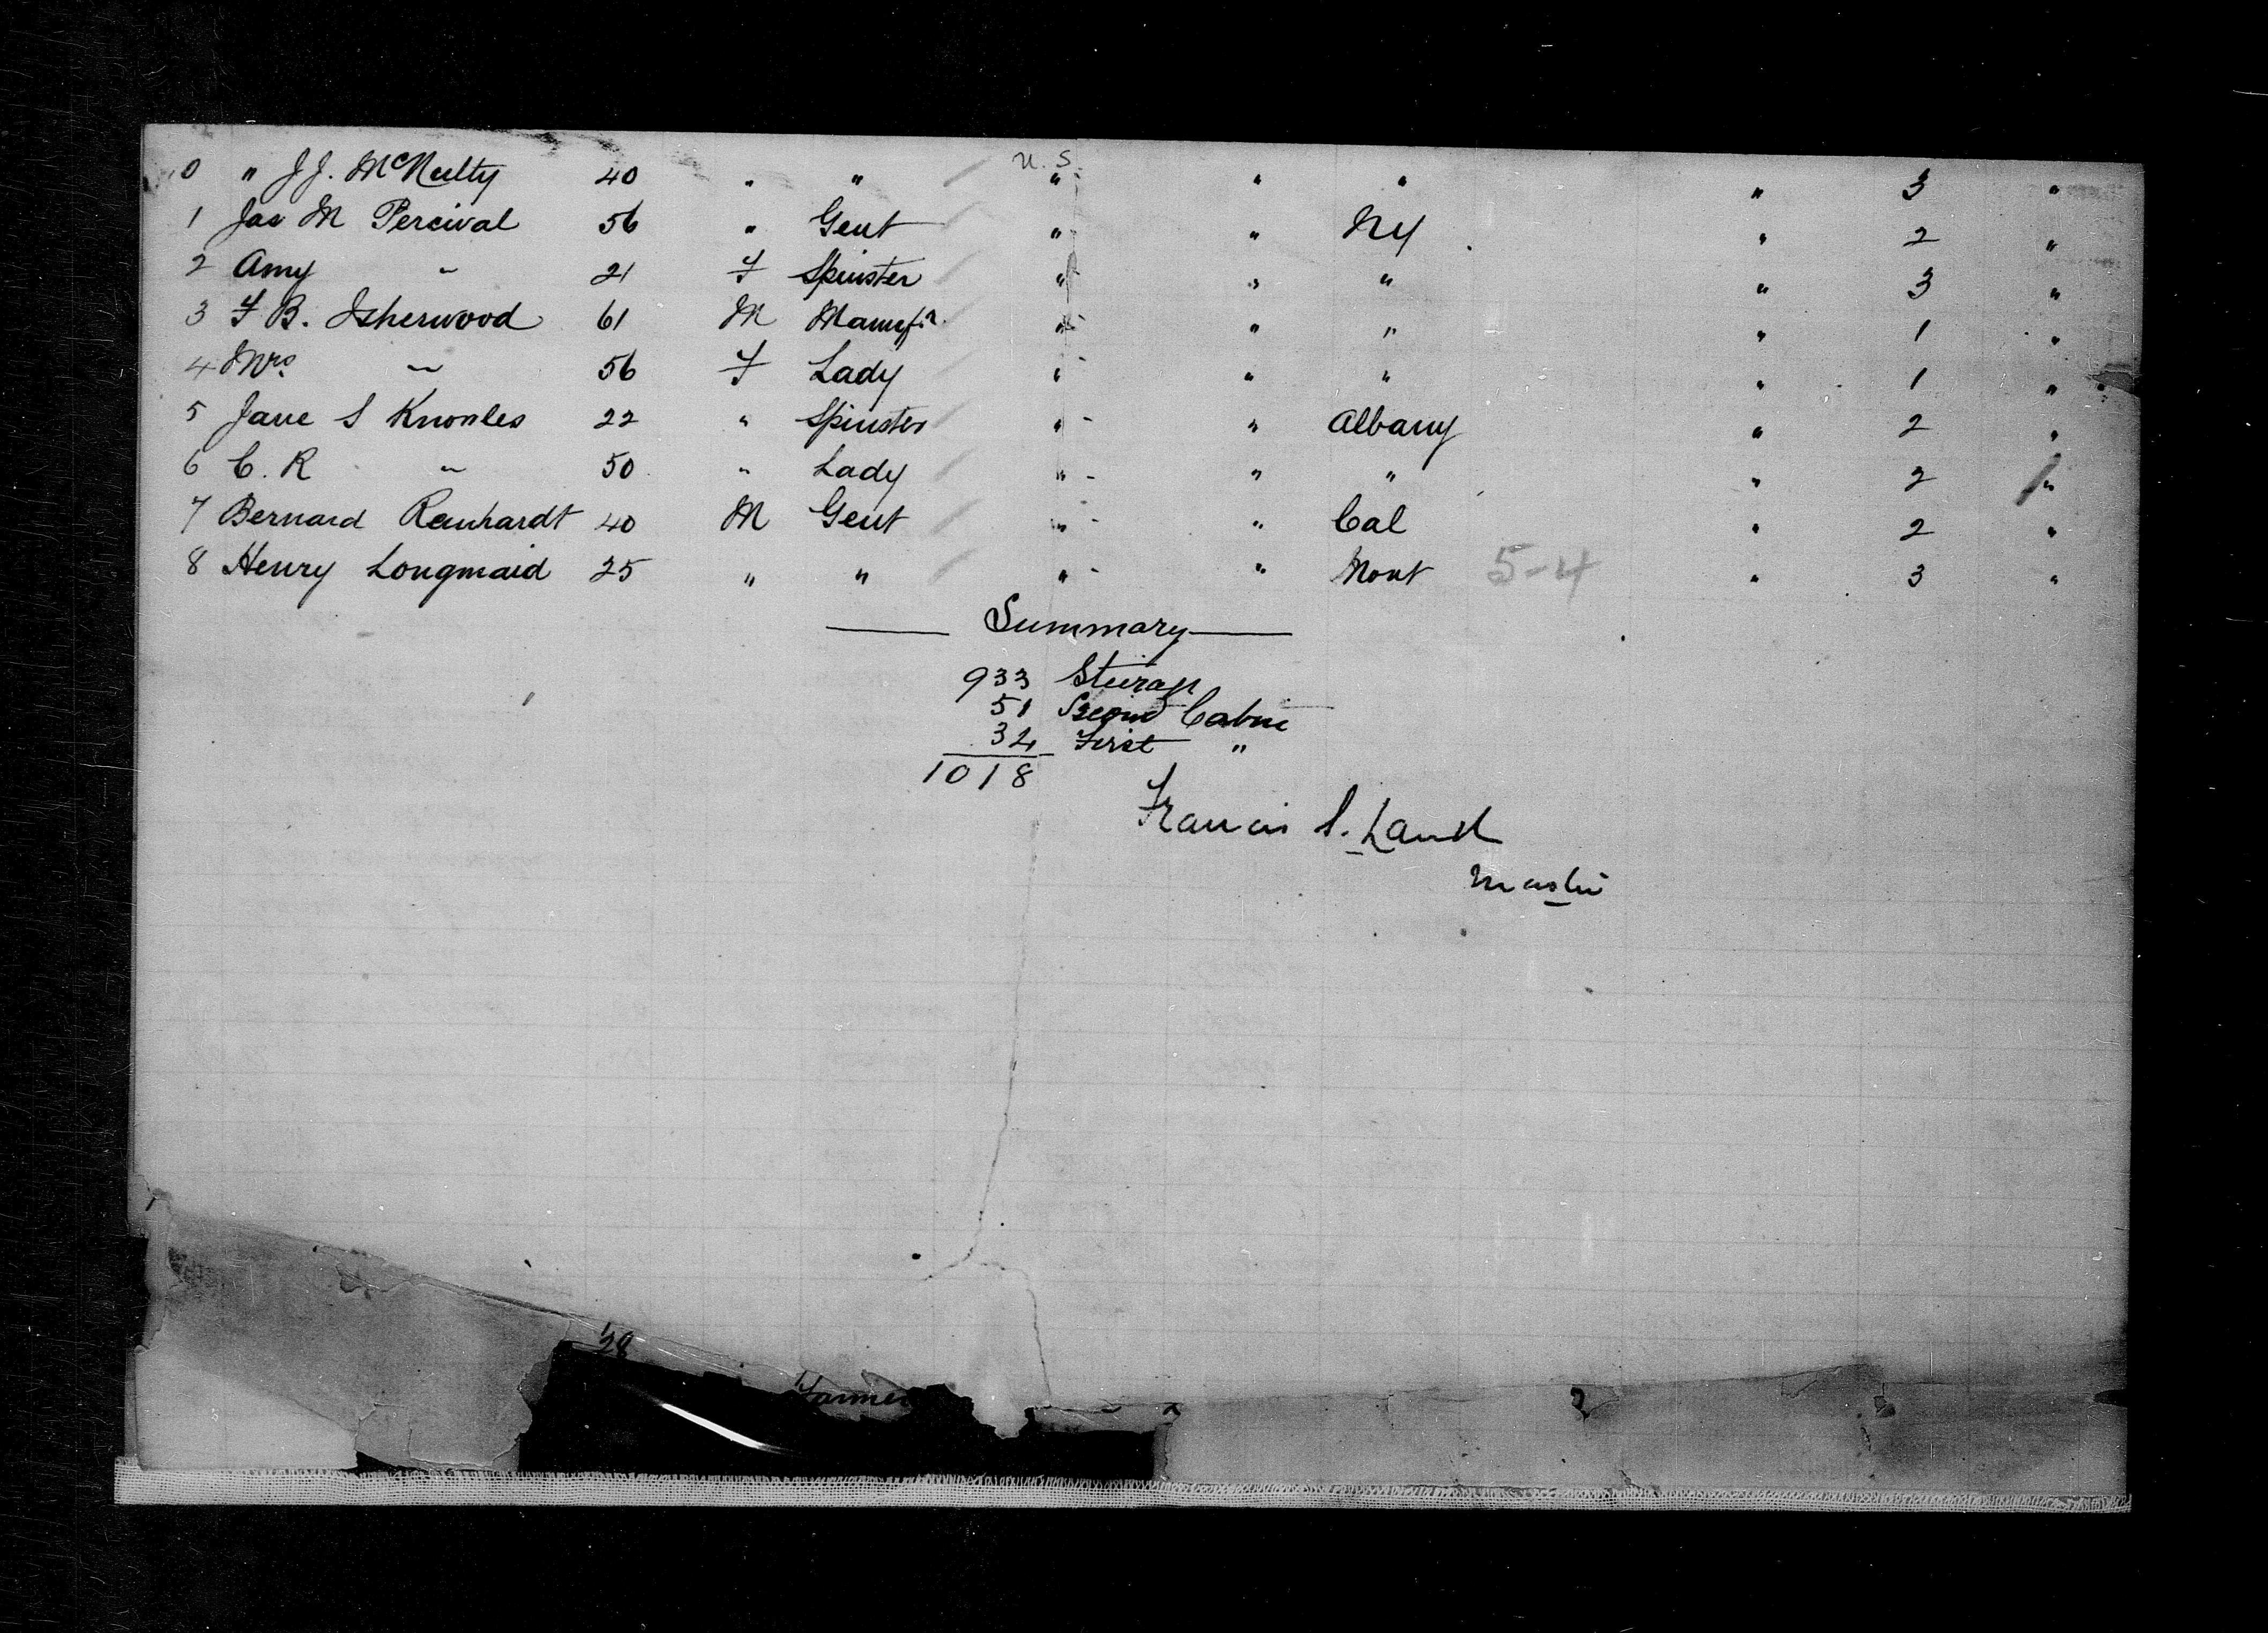 U.S.
0 " J J. McNulty 40 " " " " " " 3 "
1 Jas M Percival 56 " Gent " " NY " 2 "
2 Amy " 21 F Spinster " " " " 3 "
3 F B. Isherwood 61 M Manufr. " " " " 1 "
4 Mrs " 56 F Lady " " " " 1 "
5 Jane S Knowles 22 " Spinster " " Albany " 2 "
6 C. R " 50 " Lady " " " " 2 "
7 Bernard Reinhardt 40 M Gent " " Cal " 2 "
8 Henry Longmaid 25 " " " " Mont 5-4 " 3 "
Summary
933 Steerage
51 Second Cabin
34 First "
1018
Francis S. Land
Master
28
Farmer